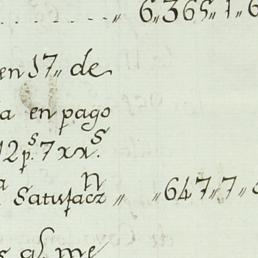 . . . . . . . . „ 6,365,,1,,6
en 17,, de
a en pago
12 p.s 7 xx.s
Satisfacn „ „647,,7,,